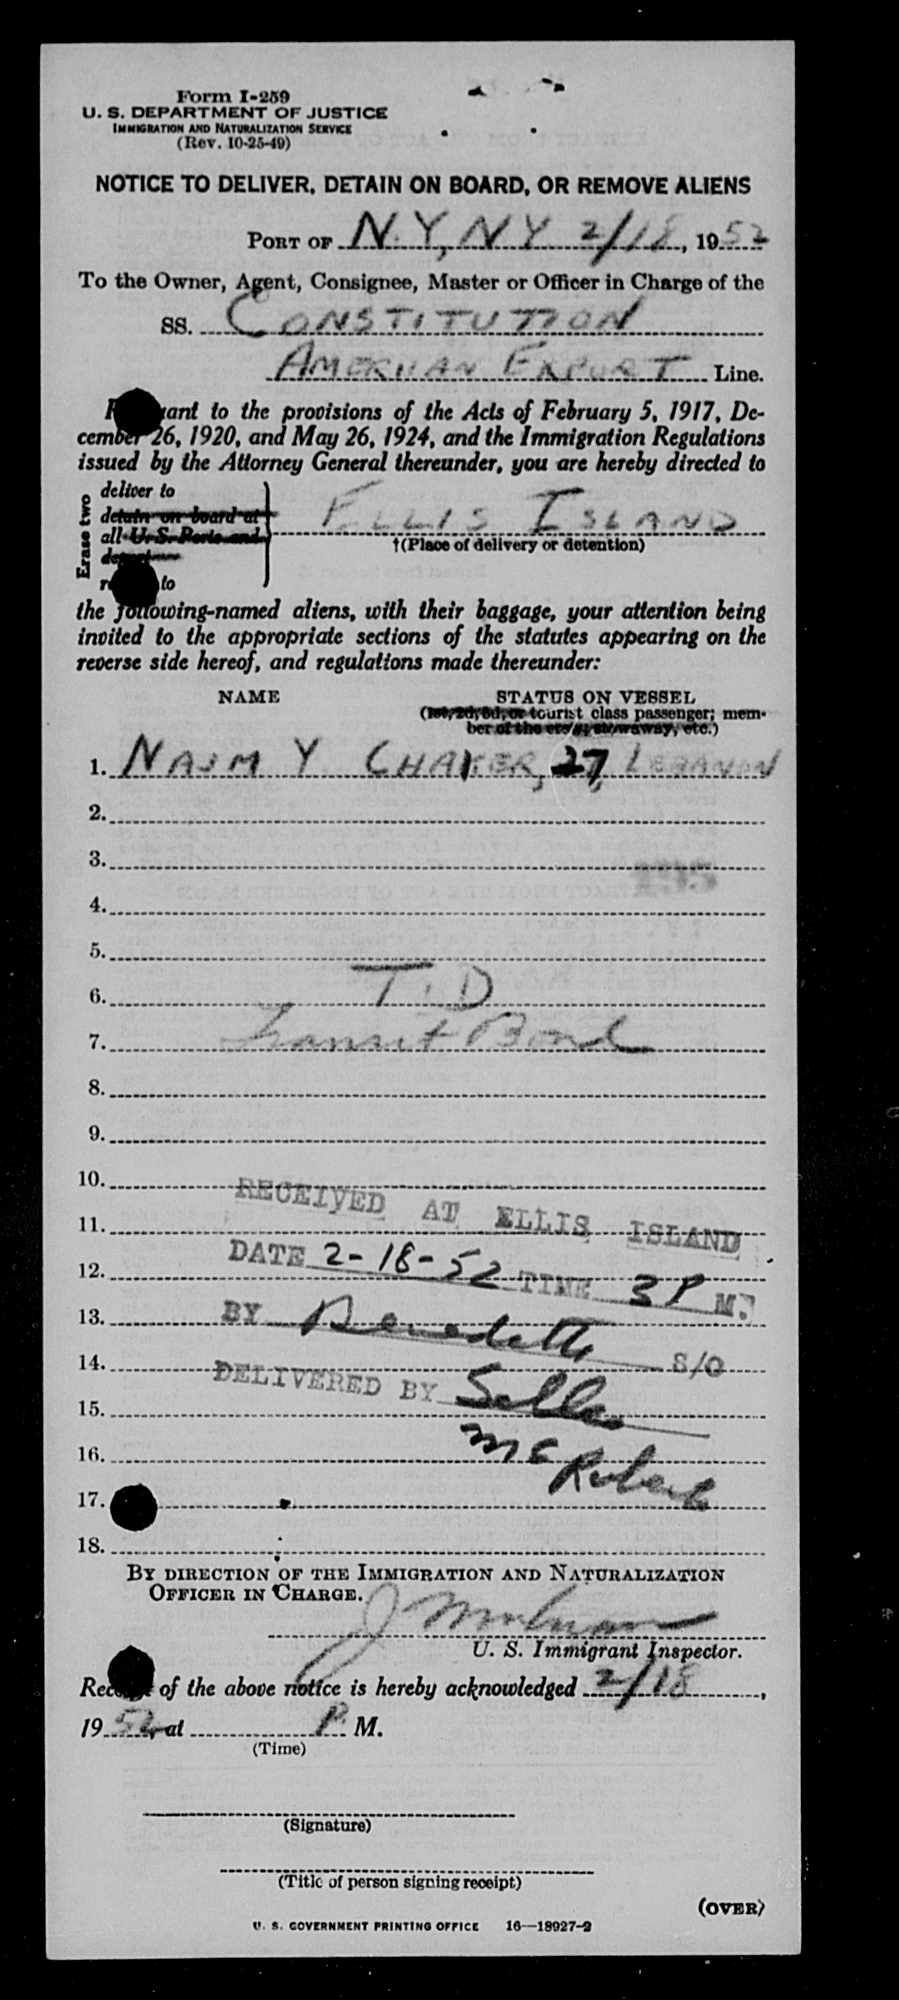 Form I-259
U. S. DEPARTMENT OF JUSTICE
IMMIGRATION AND NATURALIZATION SERVICE
(Rev. 10-25-49)
NOTICE TO DELIVER, DETAIN ON BOARD, OR REMOVE ALIENS
PORT OF N.Y, N.Y. 2/18, 1952
To the Owner, Agent, Consignee, Master or Officer in Charge of the
SS. CONSTITUTION
AMERICAN EXPORT Line.
to the provisions of the Acts of February 5, 1917, De-
cember 26, 1920, and May 26, 1924, and the Immigration Regulations
issued by the Attorney General thereunder, you are hereby directed to
Erase two
deliver to
detain on board at
all U. S. Ports and
ELLIS ISLAND
†(Place of delivery or detention)
to
the following-named aliens, with their baggage, your attention being
invited to the appropriate sections of the statutes appearing on the
reverse side hereof, and regulations made thereunder:
NAME STATUS ON VESSEL
(1st, 2d, 3d, or tourist class passenger; mem-
ber of the crew, stowaway, etc.)
1. NAJM Y CHAKER, 27, LEBANON
2.
3.
4.
5.
6. T.D
7. Transit Bond
8.
9.
10.
RECEIVED AT ELLIS ISLAND
11.
DATE 2-18-52 TIME 3 P M.
12.
13. BY S/O
14.
DELIVERED BY
15.
16.
17.
18.
BY DIRECTION OF THE IMMIGRATION AND NATURALIZATION
OFFICER IN CHARGE.
U. S. Immigrant Inspector.
of the above notice is hereby acknowledged 2/18,
1952, at P. M.
(Time)
(Signature)
(Title of person signing receipt)
(OVER)
U. S. GOVERNMENT PRINTING OFFICE 16—18927-2